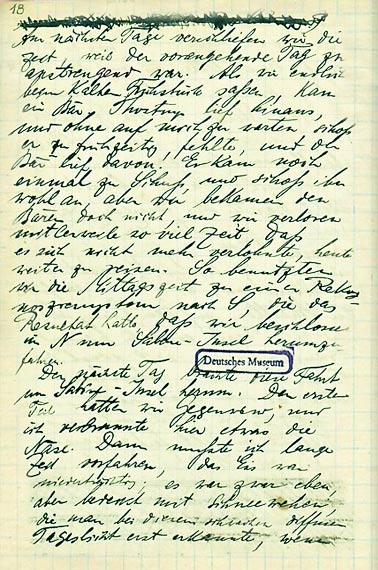 18
Am nächsten Tage verschliefen wir die
Zeit, weil der vorangehende Tag zu
anstrengend war. Als wir endlich
beim Kalten Frühstück saßen, kam
ein Bär. Thostrup lief hinaus,
und ohne auf mich zu warten, schoß
er zu frühzeitig, fehlte, und der
Bär lief davon. Er kam noch
einmal zu Schuß, und schoß ihn
wohl an, aber wir bekamen den
Bären doch nicht, und wir verloren
mittlerweile so viel Zeit, daß
es sich nicht mehr verlohnte, heute
weiter zu reisen. So benutzten
wir die Mittagszeit zu einer Rekog-
noszierungstour nach S, die das
Resultat hatte, daß wir beschlossen
im N um Sabine-Insel herumzu
fahren.
Deutsches Museum
Der nächste Tag brachte diese Fahrt
um Sabine-Insel herum. Den ersten
Teil hatten wir Gegenwind, und
ich verbrannte hier etwas die
Nase. Dann mußte ich lange
Zeit vorfahren, das Eis war
niederträchtig; es war zwar eben,
aber bedeckt mit Schneewehen,
die man bei diesem schwachen diffusen
Tageslicht erst erkannte, wenn